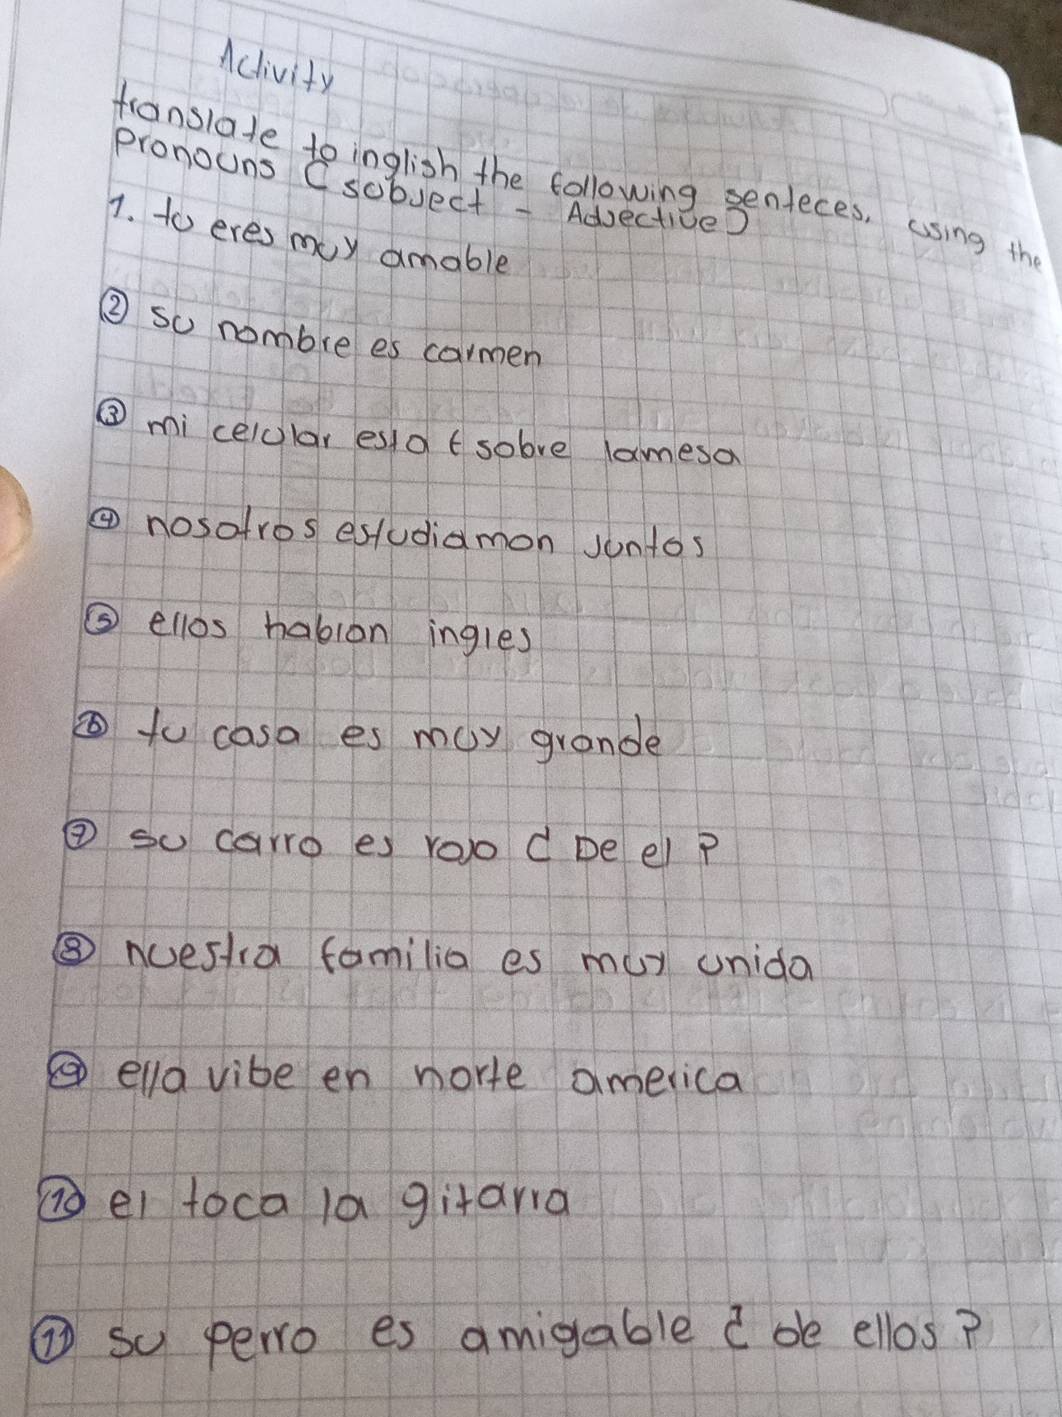 Activity
translate to inglish the following senteces, using the
pronouns (sobject - Adjective)
1. to eres muy amable
② su nombre es carmen
③ mi celular esta (sobre lamesa
④ nosotros estudiamon juntos
⑤ ellos hablan ingles
⑥ tu casa es muy grande
⑦ su carro es rojo (De el)
⑧ nuestra familia es muy unida
⑨ ella vibe en norte america
⑩ el toca la gitarra
⑪ su perro es amigable (de ellos)